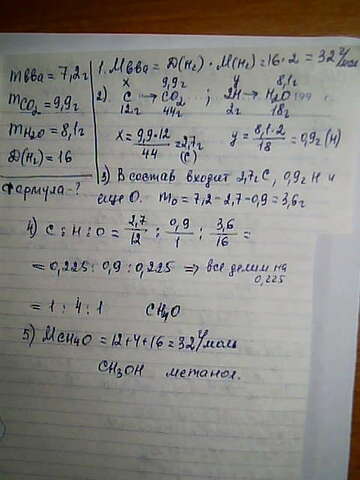 mвва = 7,2г
mCO₂ = 9,9г
mH₂O = 8,1г
D(H₂) = 16
Формула - ?
1. Mвва = D(H₂) · M(H₂) = 16 · 2 = 32 г/моль
x 9,9г y 8,1г
2) C → CO₂ ; 2H → H₂O
12г 44г 2г 18г
x = 9,9·12/44 = 2,7г (C) y = 8,1·2/18 = 0,9г (H)
3) В состав входит 2,7г C, 0,9г H и
еще O. mO = 7,2 - 2,7 - 0,9 = 3,6г
4) C : H : O = 2,7/12 : 0,9/1 : 3,6/16 =
= 0,225 : 0,9 : 0,225 ⇒ все делим на
0,225
= 1 : 4 : 1 CH₄O
5) MCH₄O = 12+4+16 = 32 г/моль
CH₃OH метанол.